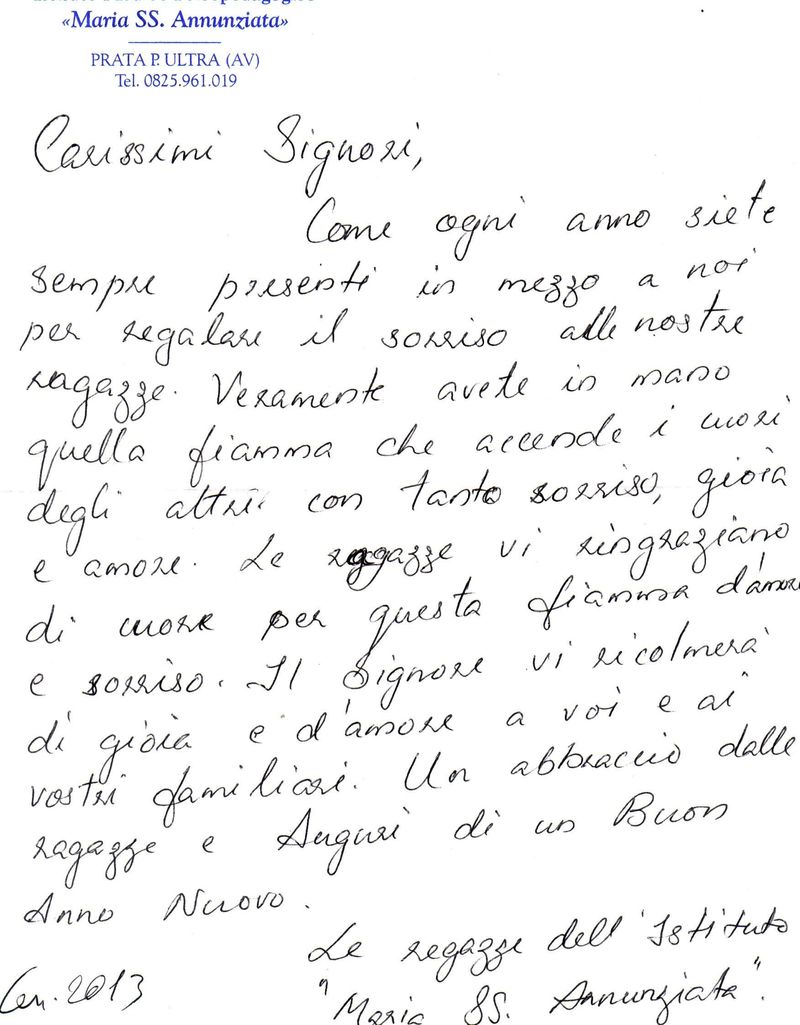 «Maria SS. Annunziata»
PRATA P. ULTRA (AV)
Tel. 0825.961.019
Carissimi Signori,
Come ogni anno siete
sempre presenti in mezzo a noi
per regalare il sorriso alle nostre
ragazze. Veramente avete in mano
quella fiamma che accende i cuori
degli altri con tanto sorriso, gioia
e amore. Le ragazze vi ringraziano
di cuore per questa fiamma d'amore
e sorriso. Il Signore vi ricolmerà
di gioia e d'amore a voi e ai
vostri familiari. Un abbraccio dalle
ragazze e Auguri di un Buon
Anno Nuovo.
Le regazze dell'Istituto
Gen. 2013
"Maria SS. Annunziata".